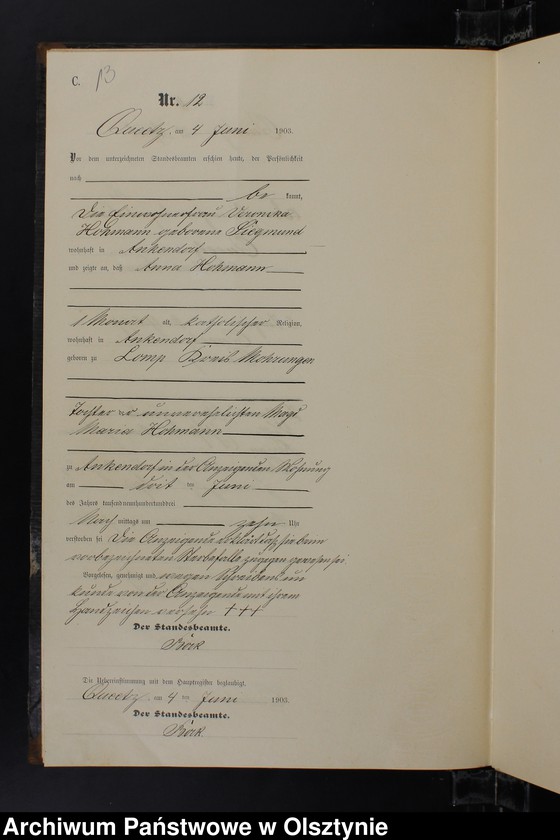 C. 13
Nr. 12
Queetz, am 4 Juni 1903.
Vor dem unterzeichneten Standesbeamten erschien heute, der Persönlichkeit
nach
be kannt,
die Einwohnerfrau Veronika
Hohmann geborene Siegmund
wohnhaft in Ankendorf
und zeigte an, daß Anna Hohmann
1 Monat alt, katholischer Religion,
wohnhaft in Ankendorf
geboren zu Lomp Kreis Mohrungen
Tochter der unverehelichten Magd
Maria Hohmann
zu Ankendorf in der Anzeigenden Wohnung
am drit ten Juni
des Jahres tausend neunhundertunddrei
Nach mittags um zehn Uhr
verstorben sei Die Anzeigende erklärt daß sie beim
vorbezeichneten Sterbefalle zugegen gewesen sei
Vorgelesen, genehmigt und wegen Schreibensun
kunde von der Anzeigende mit ihrem
Handzeichen versehn +++
Der Standesbeamte.
Börk
Die Uebereinstimmung mit dem Hauptregister beglaubigt.
Queetz, am 4 ten Juni 1903.
Der Standesbeamte.
Börk.
Archiwum Państwowe w Olsztynie